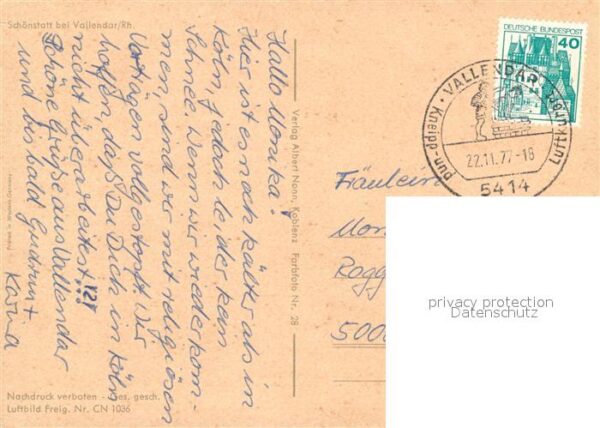 Schönstatt bei Vallendar/Rh.
Hallo Monika!
Hier ist es noch kälter als in
Köln, jedoch leider kein
Schnee. Wenn wir wiederkom-
men, sind wir mit religiösen
Vorträgen vollgestopft. Wir
hoffen, daß Du Dich in Köln
nicht überarbeitest!!!
Schöne Grüße aus Vallendar
und bis bald Gudrun +
Karin
Nachdruck verboten - Ges. gesch.
Luftbild Freig. Nr. CN 1036
Verlag Albert Nann, Koblenz Farbfoto Nr. 28
DEUTSCHE BUNDESPOST
40
VALLENDAR
Kneipp und Luftkurort
22.11.77-18
5414
Fräulein
Mon
Rogg
5000
privacy protection
Datenschutz